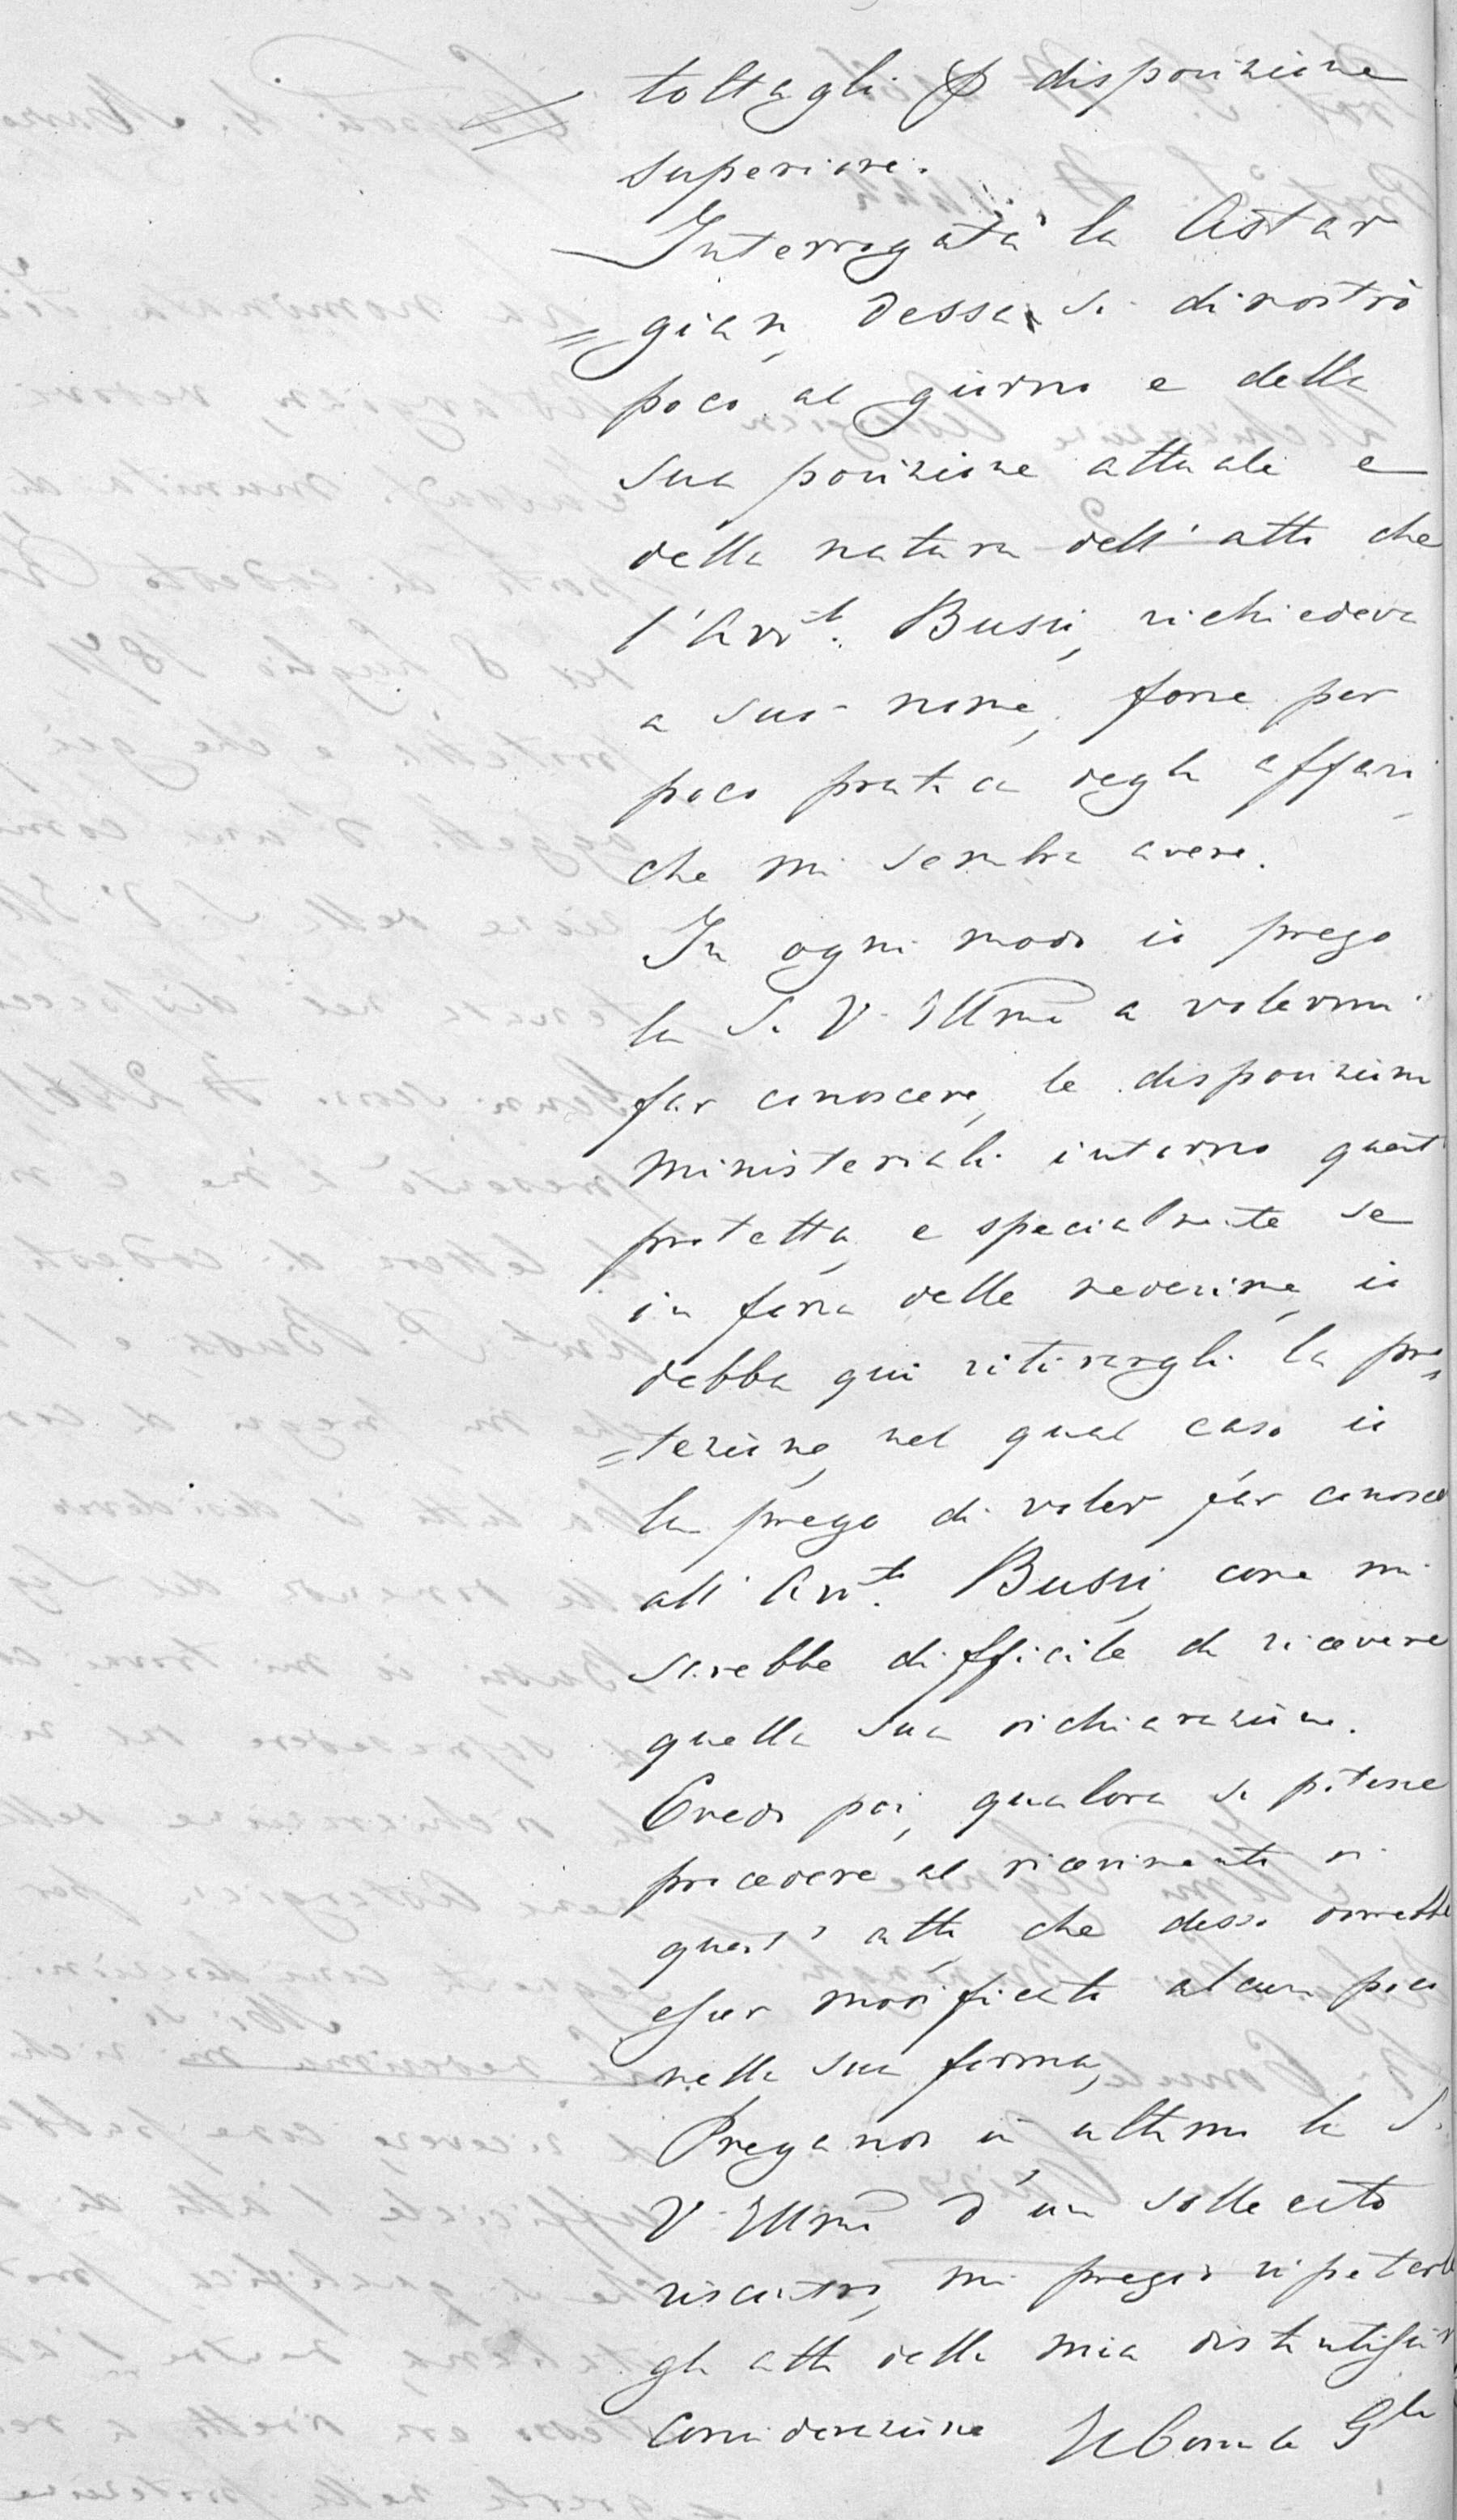 toltagli p disposizione
superiore.
Interrogata la Astar
= gian, dessa si dimostrò
poco al giorno e della
sua posizione attuale e
della natura dell'atto che
l'Avv.to Bussi, richiedeva
a suo nome, forse per
poco pratica degli affari,
che mi sembra avere.
In ogni modo io prego
la S. V. Illma a volermi
far conoscere, le disposizioni
ministeriali intorno quest
protetta, e specialmente se
in forza delle medesime, io
debba qui ritirargli la pro=
=tezione, nel qual caso io
la prego di voler far conosce
all'Avv.to Bussi, come mi
sarebbe difficile di ricevere
quella sua dichiarazione.
Credo poi, qualora si potesse
procedere al ricevimento di
quest'atto, che desso dovrebbe
esser modificato alcun poco
nella sua forma,
Pregando in ultimo la S.
V. Illma d'un sollecito
riscontro, mi pregio ripeterle
gli atti della mia distintissima
Considerazione Il Console Gle